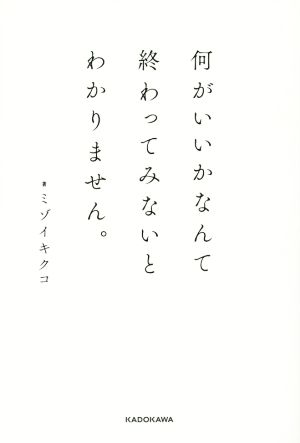 何がいいかなんて
終わってみないと
わかりません。
著 ミゾイキクコ
KADOKAWA